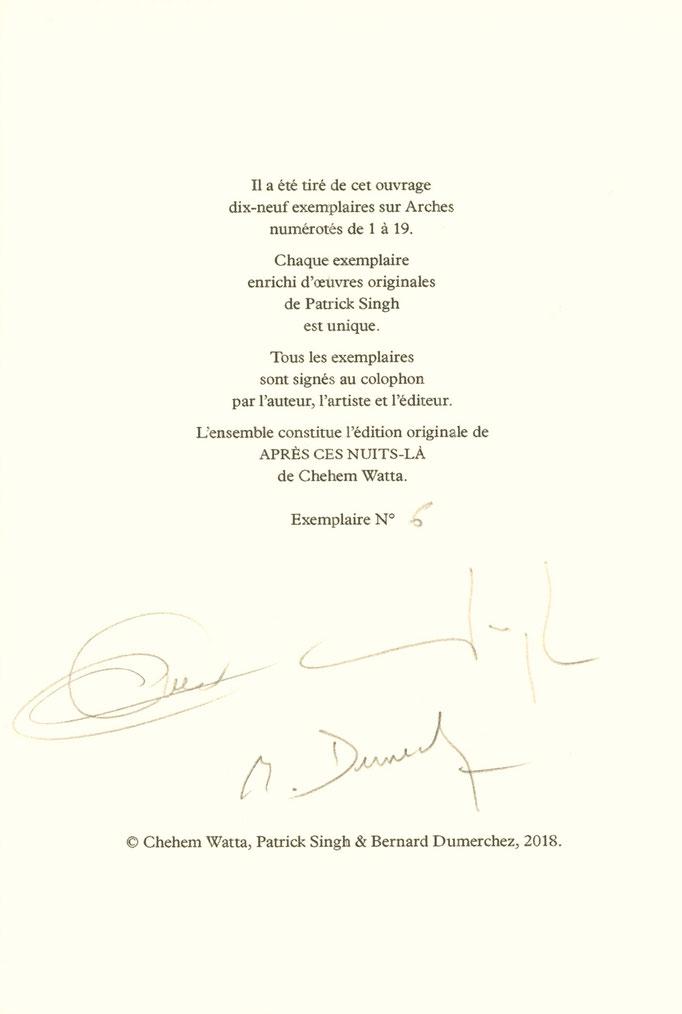 Il a été tiré de cet ouvrage
dix-neuf exemplaires sur Arches
numérotés de 1 à 19.
Chaque exemplaire
enrichi d’œuvres originales
de Patrick Singh
est unique.
Tous les exemplaires
sont signés au colophon
par l’auteur, l’artiste et l’éditeur.
L’ensemble constitue l’édition originale de
APRÈS CES NUITS-LÀ
de Chehem Watta.
Exemplaire N° 6
© Chehem Watta, Patrick Singh & Bernard Dumerchez, 2018.